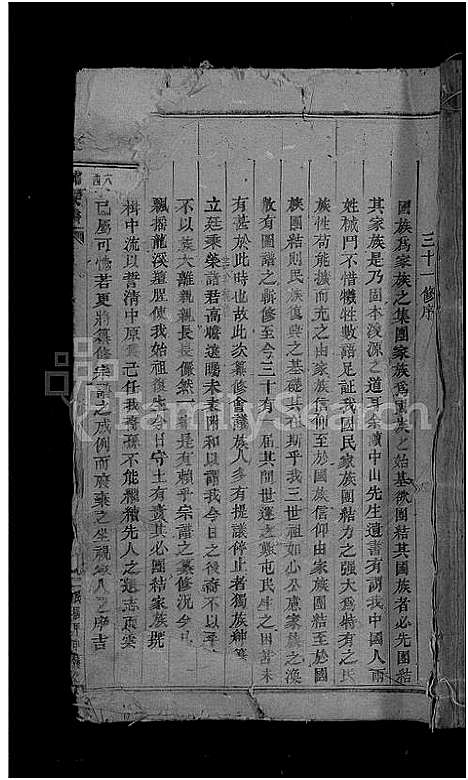 三十一修序
國族爲家族之集團家族爲國族之始基欲團結其國族者必先團結
其家族是乃固本浚源之道耳余讀中山先生遺書有謂我中國人兩
姓械鬥不惜犧牲數語足証我國民家族團結力之强大爲特有之民
族性苟能擴而充之由家族信仰至於國族信仰由家族團結至於國
族團結則民族復興之基礎其在斯乎我三世祖如心公慮家族之渙
散有圖譜之輯修至今三十有一屆其間世運之艱屯民生之困苦未
有甚於此時也故此次纂修會議族人多有提議停止者獨族紳
立廷乘榮諸君高瞻遠矚未表附和以謂我今日之後裔不以子
不以族大離親親長長儼然一 是有賴乎宗譜之纂修況今
飄搖龍溪 腥使我始祖復生今日守土有責其必團結家族
楫中流以誓清中原 己任我裔孫不能繼續先人之遺志
已屬可愧若更將纂修宗譜之成例而廢棄之坐視 人之序
FamilySearch